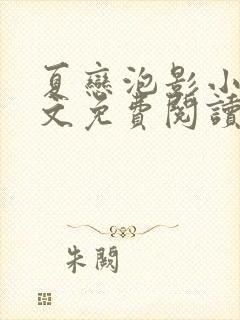 夏戀泡影小
文免費閱讀
朱闕